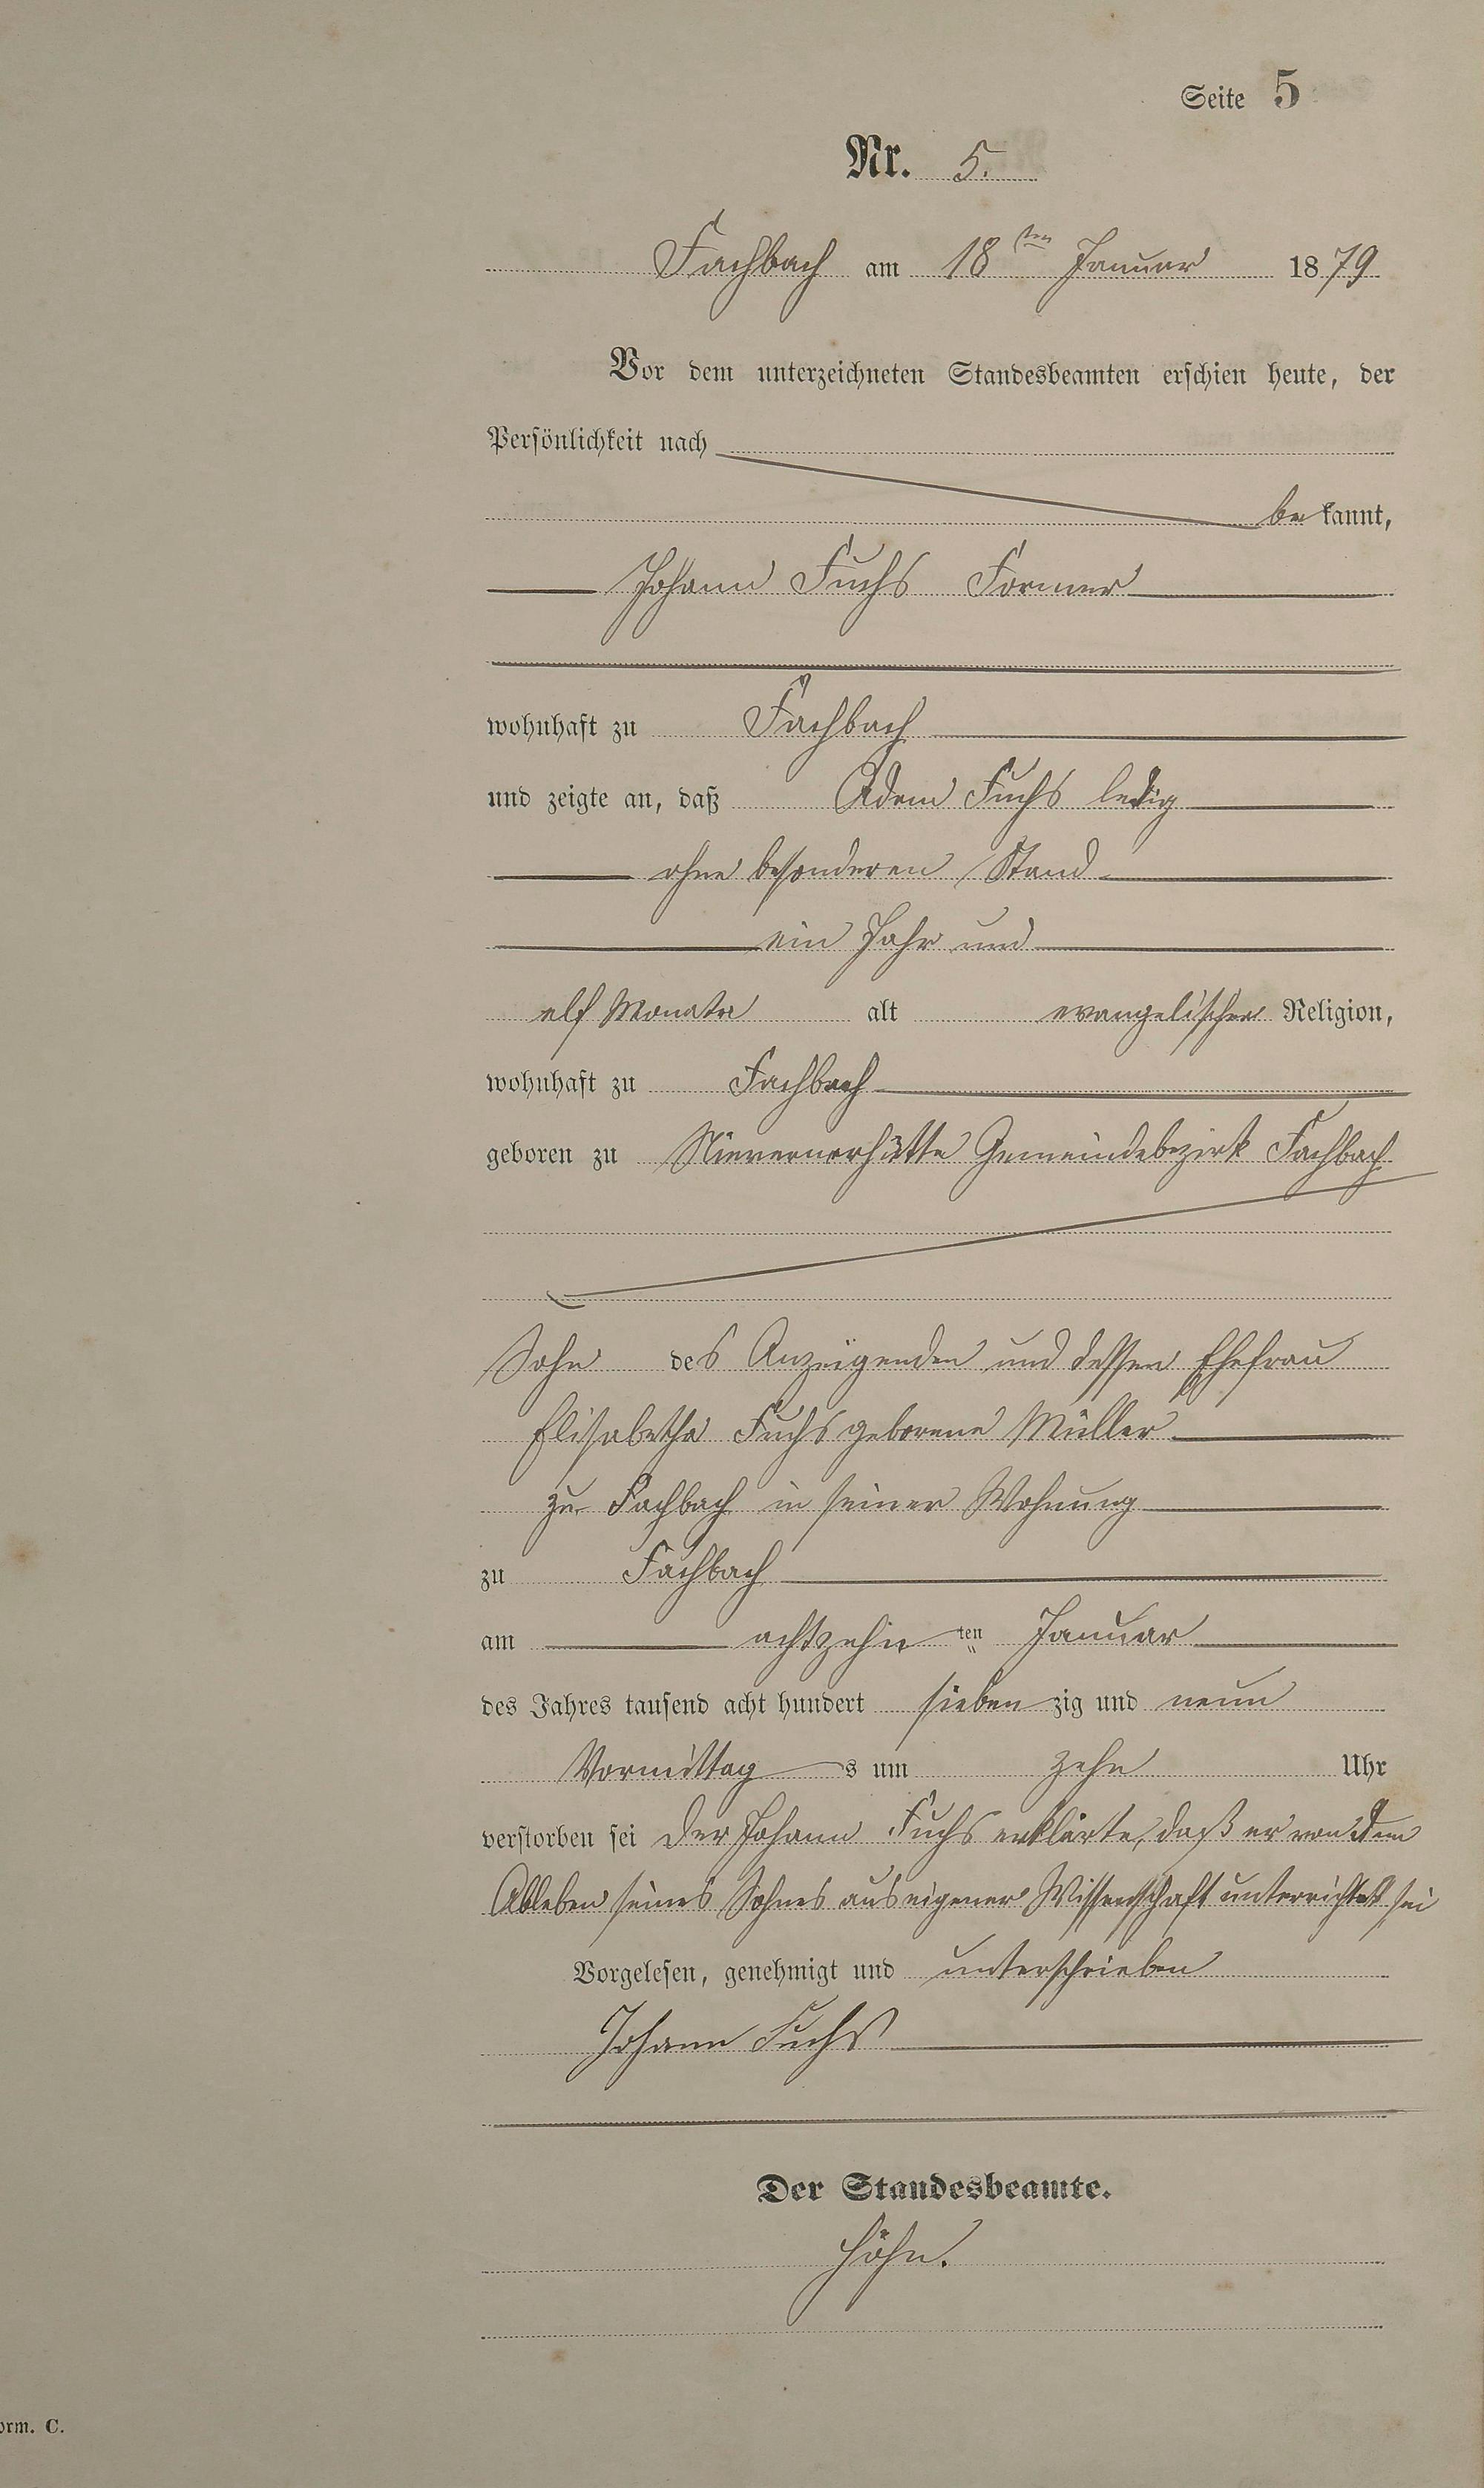 Seite 5
Nr. 5.
Fachbach am 18ten Januar 1879
Vor dem unterzeichneten Standesbeamten erschien heute, der
Persönlichkeit nach
bekannt,
Johann Fuchs Former
wohnhaft zu Fachbach
und zeigte an, daß Adam Fuchs ledig
ohne besonderen Stand
ein Jahr und
elf Monate alt evangelischer Religion,
wohnhaft zu Fachbach
geboren zu Nievernerhütte Gemeindebezirk Fachbach
Sohn des Anzeigenden und dessen Ehefrau
Elisabetha Fuchs geborene Müller
zu Fachbach in seiner Wohnung
zu Fachbach
am achtzehnten Januar
des Jahres tausend acht hundert siebenzig und neun
Vormittags um zehn Uhr
verstorben sei Der Johann Fuchs erklärte, daß er von dem
Ableben seines Sohnes aus eigener Wissenschaft unterrichtet sei
Vorgelesen, genehmigt und unterschrieben
Johann Fuchs
Der Standesbeamte.
Höhn.
orm. C.